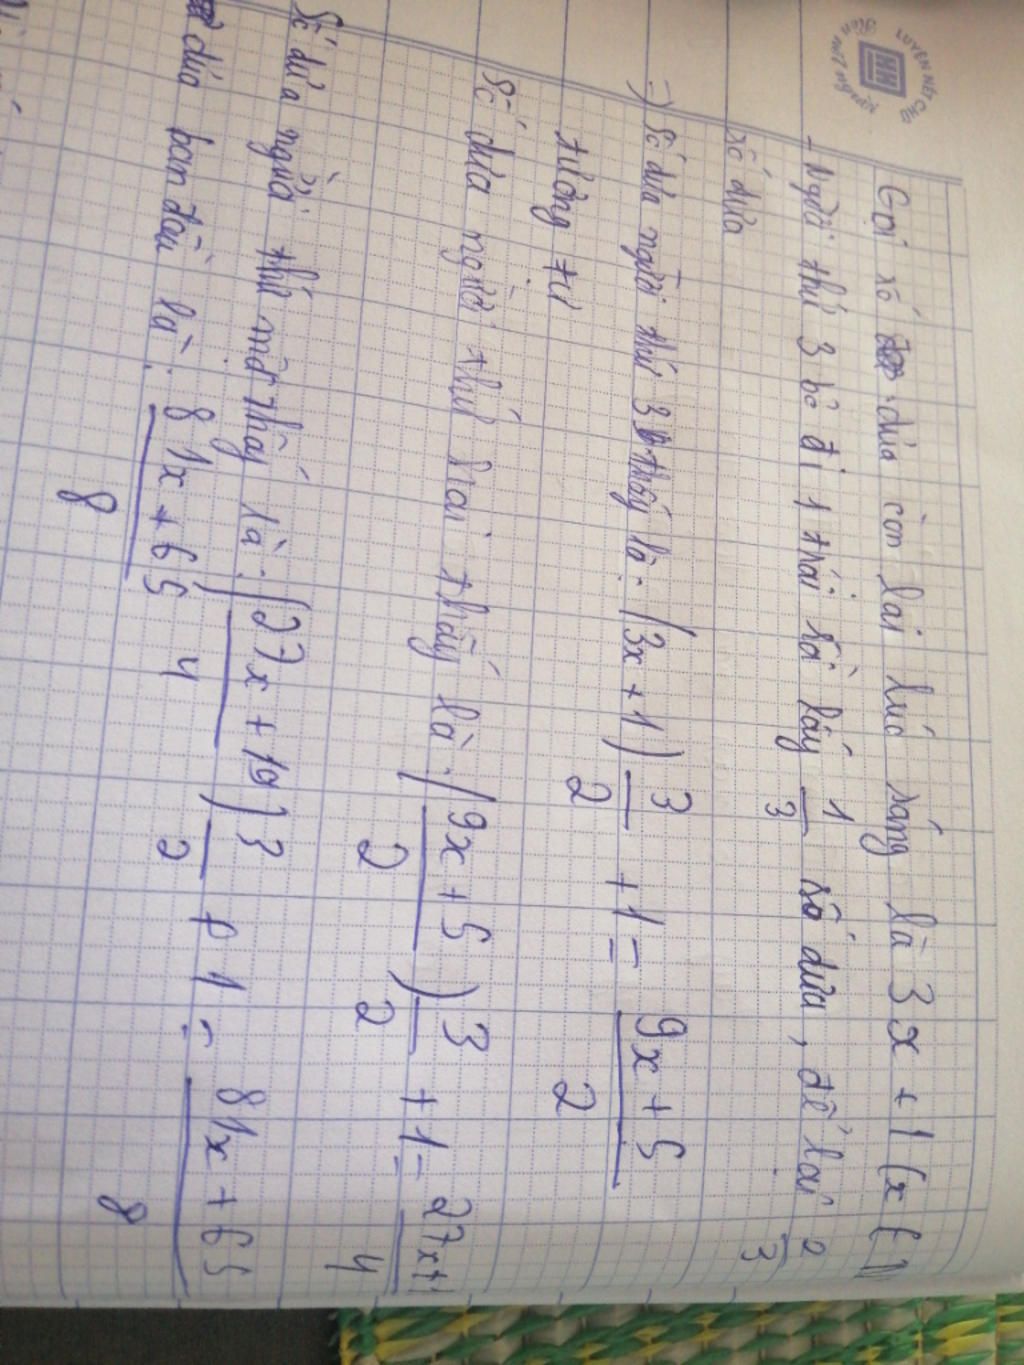 LUYỆN NÉT CHỮ
Rèn nết người
Gọi số dừa còn lại lúc sáng là 3x + 1 (x ∈ N
- Người thứ 3 bỏ đi 1 trái rồi lấy 1/3 số dừa, để lại 2/3
số dừa
=) Số dừa người thứ 3 thấy là: (3x + 1) 3/2 + 1 = 9x + 5 / 2
tương tự
Số dừa người thứ hai thấy là: (9x + 5 / 2) 3/2 + 1 = 27x + 1 / 4
Số dừa người thứ một thấy là: (27x + 19 / 4) 3/2 + 1 = 81x + 65 / 8
dừa ban đầu là: 81x + 65 / 8